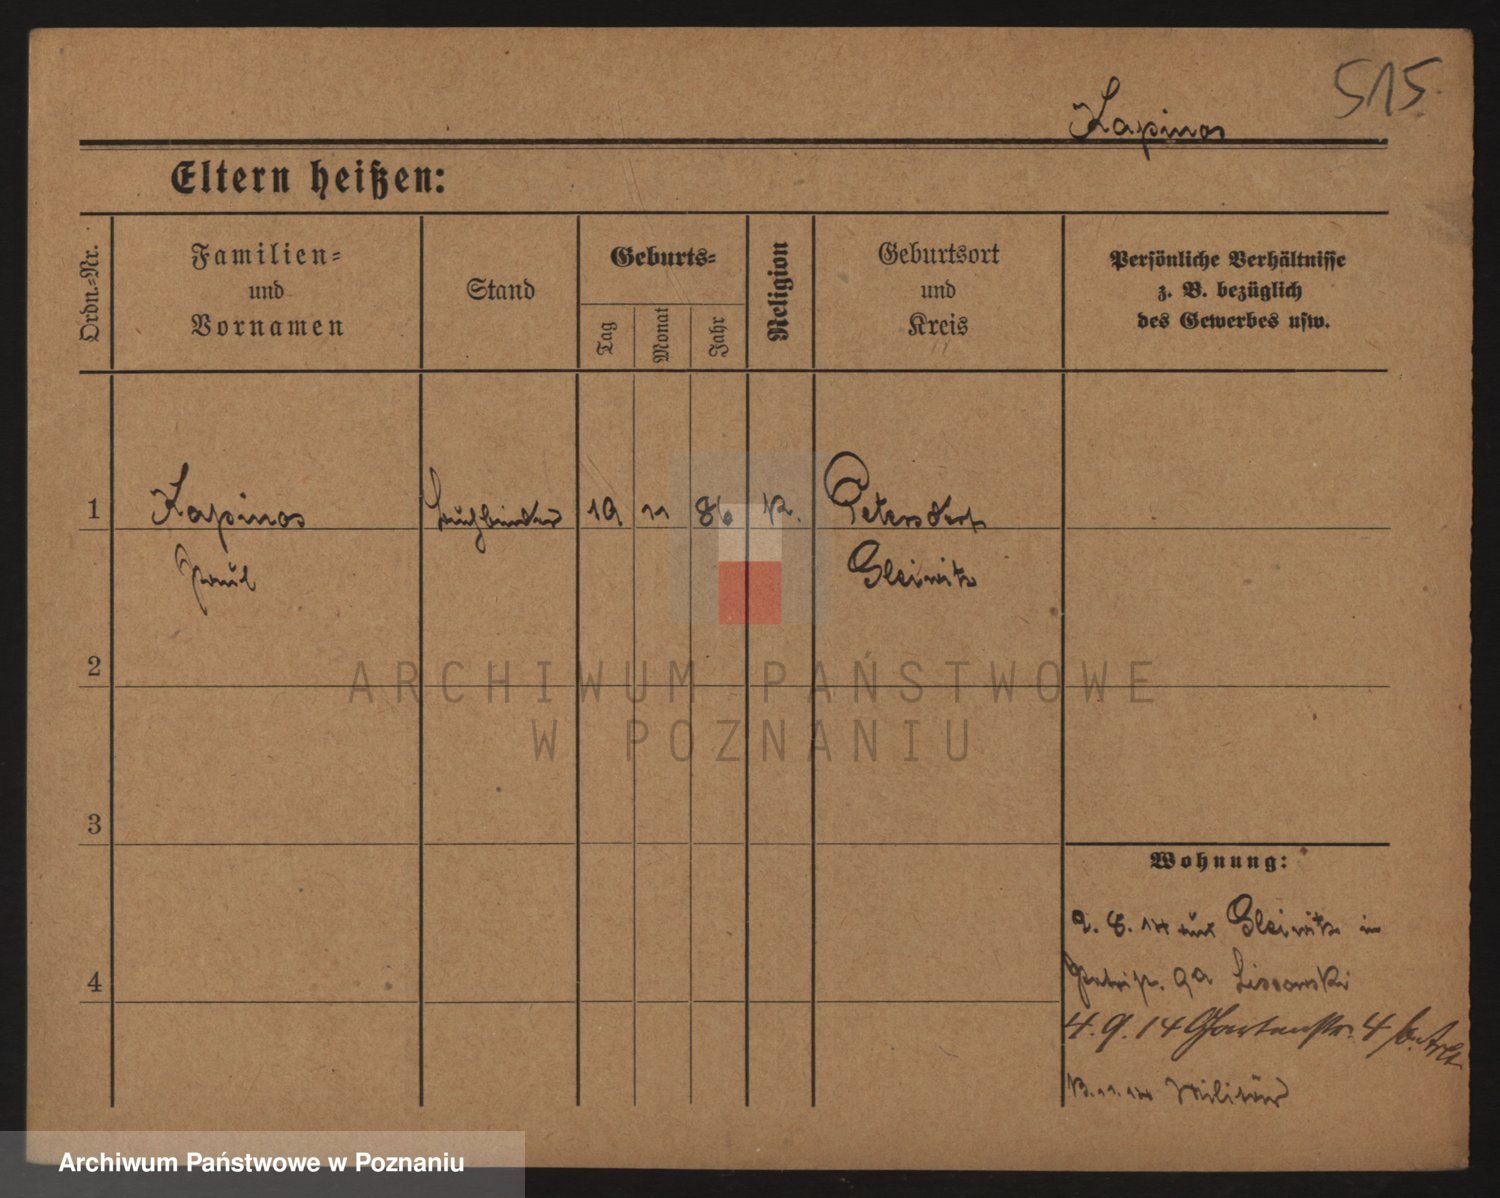 515.
Kapinos
Eltern heißen:
Ordn.-Nr.
Familien-
und
Vornamen
Stand
Geburts-
Tag
Monat
Jahr
Religion
Geburtsort
und
Kreis
Persönliche Verhältnisse
z. B. bezüglich
des Gewerbes usw.
1 Kapinos Buchbinder 19 11 86 K. Petersdorf
Paul Gleiwitz
2
3
4
Wohnung:
2. 6. 14 aus Gleiwitz in
9a Lissowski
4. 9. 14 Gartenstr. 4
13. 11. 14 Militär
ARCHIWUM PAŃSTWOWE
W POZNANIU
Archiwum Państwowe w Poznaniu